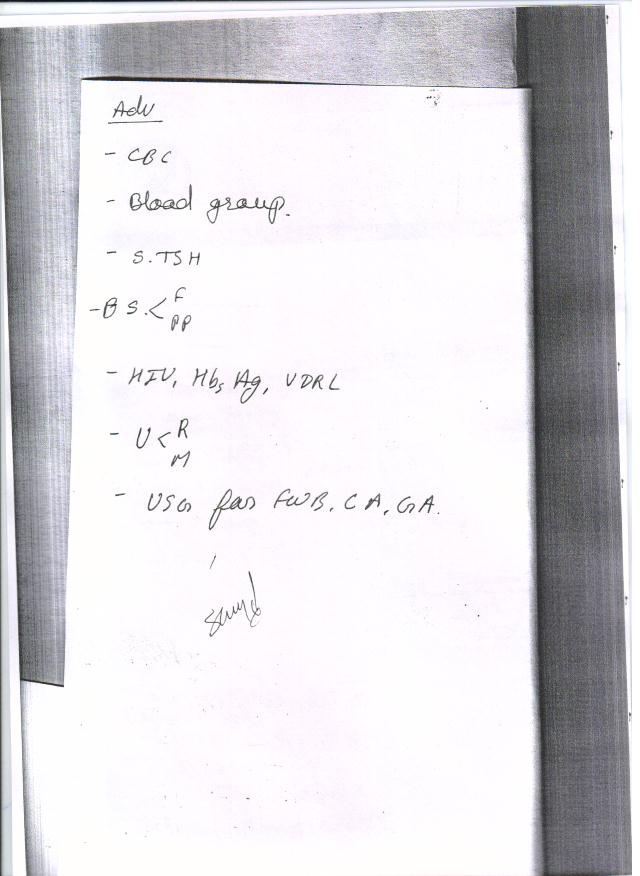 Adv
- CBC
- Blood group.
- S.TSH
- B S. < F
PP
- HIV, HbsAg, VDRL
- U < R
M
- USG for FWB, CA, GA.